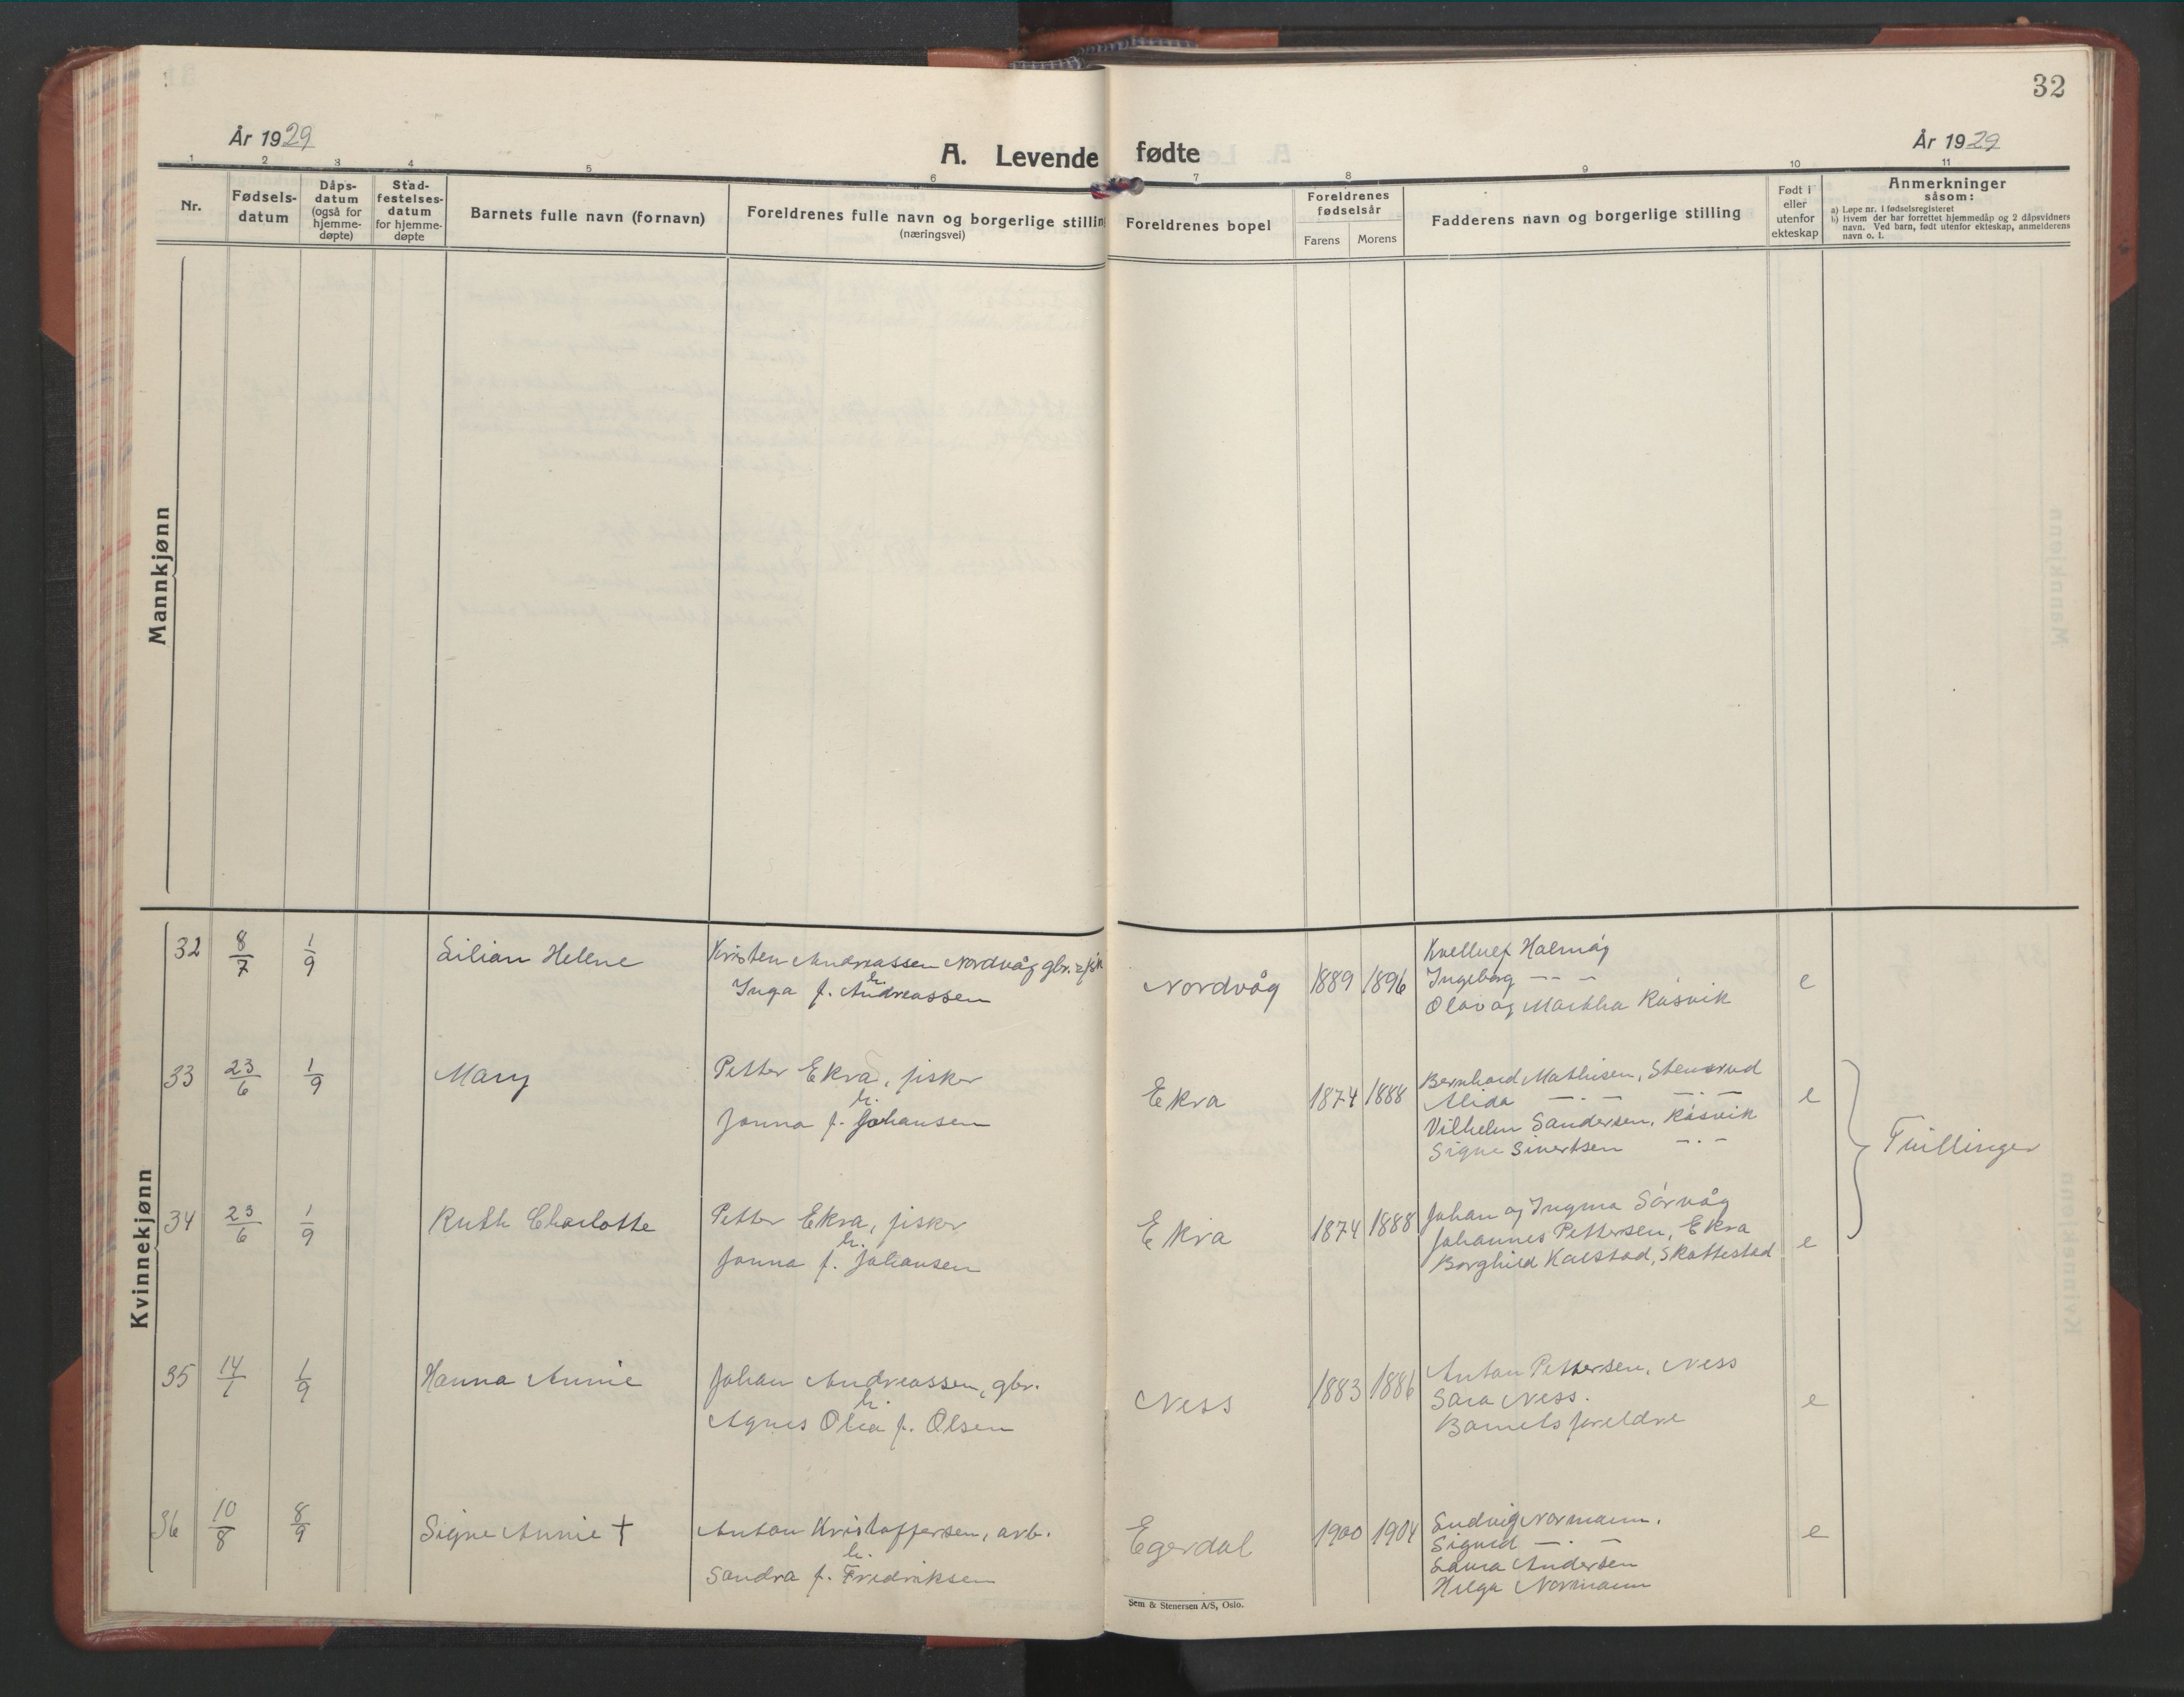 32
År 1929
A. Levende fødte
År 1929
1 2 3 4 5 6 7 8 9 10 11
Nr.
Fødsels-
datum
Dåps-
datum
(også for
hjemme-
døpte)
Stad-
festelses-
datum
for hjemme-
døpte
Barnets fulle navn (fornavn)
Foreldrenes fulle navn og borgerlige stilling
(næringsvei)
Foreldrenes bopel
Foreldrenes
fødselsår
Farens Morens
Fadderens navn og borgerlige stilling
Født i
eller
utenfor
ekteskap
Anmerkninger
såsom:
a) Løpe nr. i fødselsregisteret
b) Hvem der har forrettet hjemmedåp og 2 dåpsvidners
navn. Ved barn, født utenfor ekteskap, anmelderens
navn o. l.
Mannkjønn
Kvinnekjønn
32 8/7 1/9 Lilian Helene
Kristen Andreassen Nordvåg gbr. &
h.
Inga f. Andreassen
Nordvåg 1889 1896
Kvellulf Halmøy
Ingeborg — — —
Olav og Martha Råsvik
e
33 23/6 1/9 Mary
Petter Ekra, fisker
h.
Jonna f. Johansen
Ekra 1874 1888
Bernhard Mathisen, Stensrud
Alida — . — — . —
Vilhelm Sandersen, Råsvik
Signe Sivertsen — . —
e
Tvillinger
34 23/6 1/9 Ruth Charlotte
Petter Ekra, fisker
h.
Jonna f. Johansen
Ekra 1874 1888
Johan og Ingma Sørvåg
Johannes Pettersen, Ekra
Borghild Karstad, Skottestad
e
35 14/1 1/9 Hanna Annie
Johan Andreassen, gbr.
h.
Agnes Olea f. Olsen
Ness 1883 1886
Anton Pettersen, Ness
Sara Ness.
Barnets foreldre
e
36 10/8 8/9 Signe Annie †
Anton Kristoffersen, arb.
h.
Sandra f. Fredriksen
Egerdal 1900 1904
Ludvig Normann.
Sigurd — . —
Laura Andersen
Helga Normann
e
Sem & Stenersen A/S, Oslo.